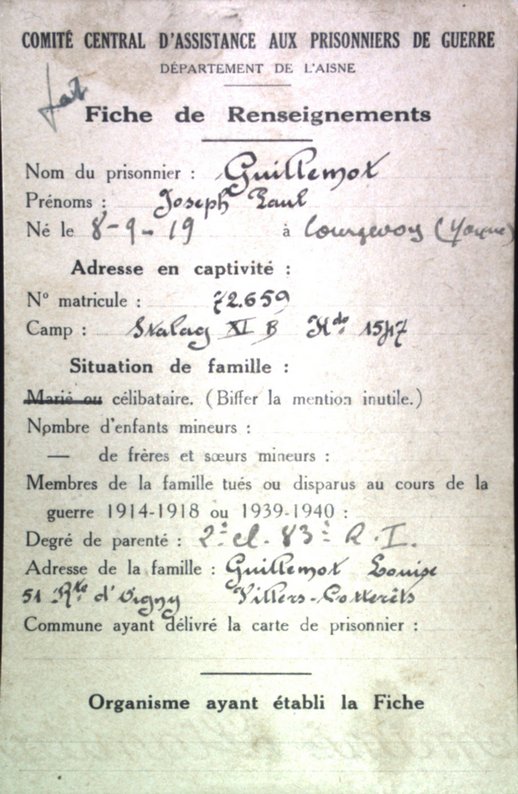 COMITÉ CENTRAL D'ASSISTANCE AUX PRISONNIERS DE GUERRE
DÉPARTEMENT DE L'AISNE
Fiche de Renseignements
Nom du prisonnier : Guillemot
Prénoms : Joseph Paul
Né le 8-9-19 à Courgevoy (Yonne)
Adresse en captivité :
N° matricule : 72.659
Camp : Stalag XI B Kdo 1547
Situation de famille :
Marié ou célibataire. (Biffer la mention inutile.)
Nombre d'enfants mineurs :
— de frères et sœurs mineurs :
Membres de la famille tués ou disparus au cours de la
guerre 1914-1918 ou 1939-1940 :
Degré de parenté : 2è cl. 83è R.I.
Adresse de la famille : Guillemot Louise
51 Rte d'Vigny Villers-Cotterêts
Commune ayant délivré la carte de prisonnier :
Organisme ayant établi la Fiche